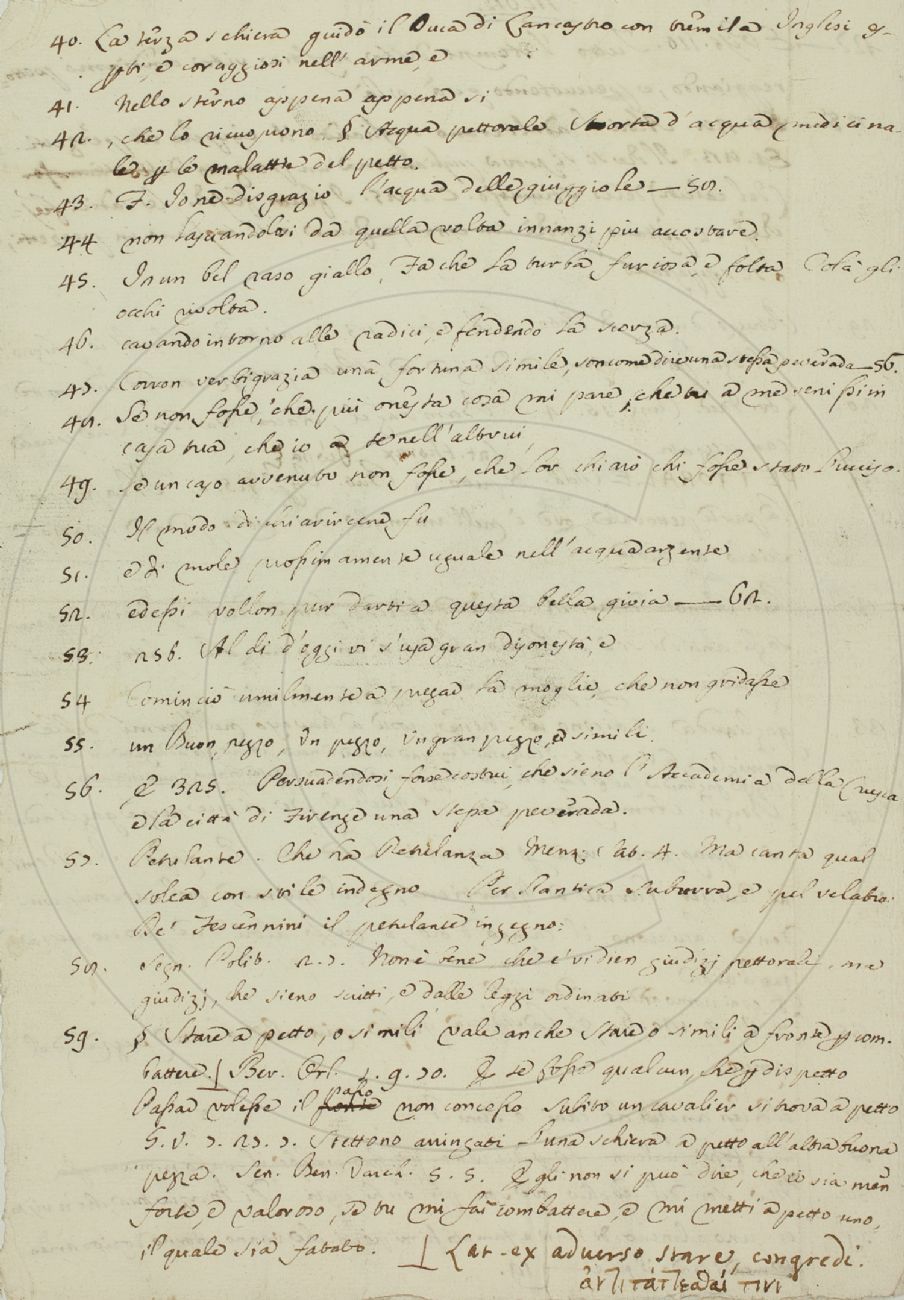 40. La terza schiera guidò il Duca di Lancastro con tremila Inglesi es-
pti, e coraggiosi nell'arme, e
41. Nello sterno appena appena si
42. , che lo ricuoprono. § Acqua pettorale. Sorta d'acqua medicina-
le p le malattie del petto.
43. F. Ione disgrazio l'acqua delle giuggiole — 58.
44 non lasciandolesi da quella volta innanzi più accostare.
45. In un bel vaso giallo, Fa che la turba furiosa, e folta Colà gli
occhi rivolta.
46. cavando intorno alle radici, e fendendo la scorza.
47. Corron verbigrazia una fortuna simile, son come dire una stessa peverada — 56.
48. Se non fosse, che più onesta cosa mi pare, che tu a me venissi in
casa tua, che io a te nell'altrui,
49. se un caso avvenuto non fosse, che lor chiarò chi fosse stato l'ucciso.
50. Il modo di chiarircene fu
51. e di mole prossimamente uguale nell'acquarzente
52. edessi vollon pur darti a questa bella gioia — 62.
53. 256. Al dì d'oggi vi s'usa gran disonestà, e
54 Cominciò umilmente a pregar la moglie, che non gridasse
55. un Buon pezzo, Un pezzo, Un gran pezzo, e simili.
56. E 325. Persuadendosi forse costui, che sieno l'Accademia della Crusca
e la città di Firenze una stessa peverada.
57. Petulante. Che ha Petulanza Menz. Sat. 4. Ma canta qual
solea con stile indegno Per l'antica suburra, e pel velabro
De' Fescennini il petulante ingegno:
58. Segn. Polit. 2. 7. Non è bene che e' vi dien giudizj pettorali, ma
giudizj, che sieno scritti, e dalle leggi ordinati
59. § Stare a petto, o simili vale anche Stare o simili a fronte p com-
battere. ⊥ Ber. Orl. 1. 9. 70. E se fosse qualcun, che p dispetto
Passar volesse il ponte passo non concesso Subito un cavalier si trova a petto
G. V. 7. 27. 7. Stettono arringati l'una schiera a petto all'altra buona
pezza. Sen. Ben. Varch. 5. 5. Egli non si può dire, che io sia men
forte, e valoroso, se tu mi fai combattere, e mi metti a petto uno,
il quale sia fatato. ⊥ Lat. ex adverso stare, congredi.
ἀντιτάττεσθαί τινι